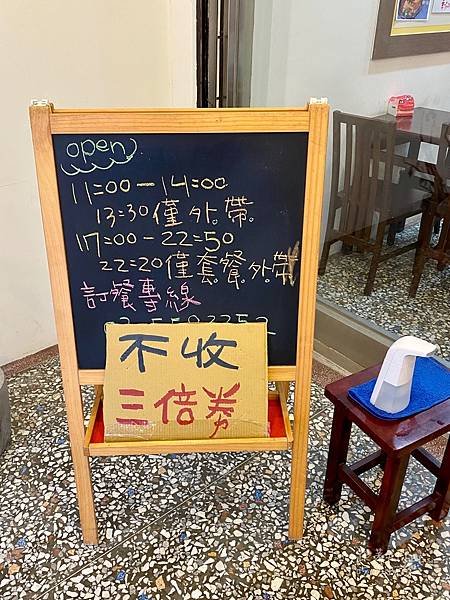 open
11:00-14:00
13:30僅外帶
17:00-22:50
22:20僅套餐外帶
訂餐專線
不收
三倍券